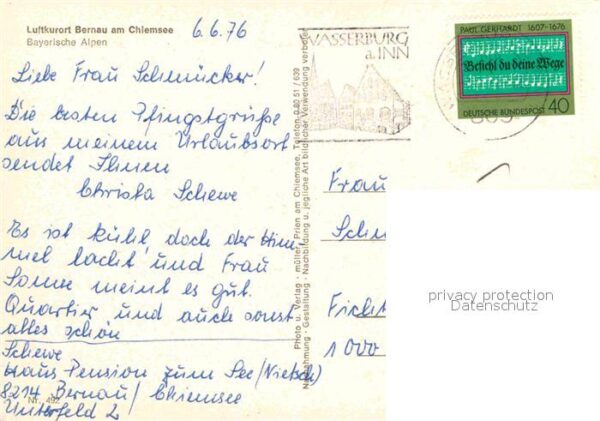 Luftkurort Bernau am Chiemsee
Bayerische Alpen
6.6.76
Liebe Frau Schmücker!
Die besten Pfingstgrüße
aus meinem Urlaubsort
sendet Ihnen
Christa Schewe
Es ist kühl, doch der Him-
mel lacht und Frau
Sonne meint es gut.
Quartier und auch sonst
alles schön
Schewe
Haus Pension zum See (Nietsch)
8214 Bernau/Chiemsee
Unterfeld 2
Nr. 492
Photo u. Verlag - müller, Prien am Chiemsee, Telefon 0 80 51 / 630
Nachahmung - Gestaltung - Nachbildung u. jegliche Art bildlicher Verwendung verboten
WASSERBURG
a. INN
PAUL GERHARDT 1607-1676
Befiehl du deine Wege
DEUTSCHE BUNDESPOST 40
Frau
Schm
Ficht
1000
privacy protection
Datenschutz